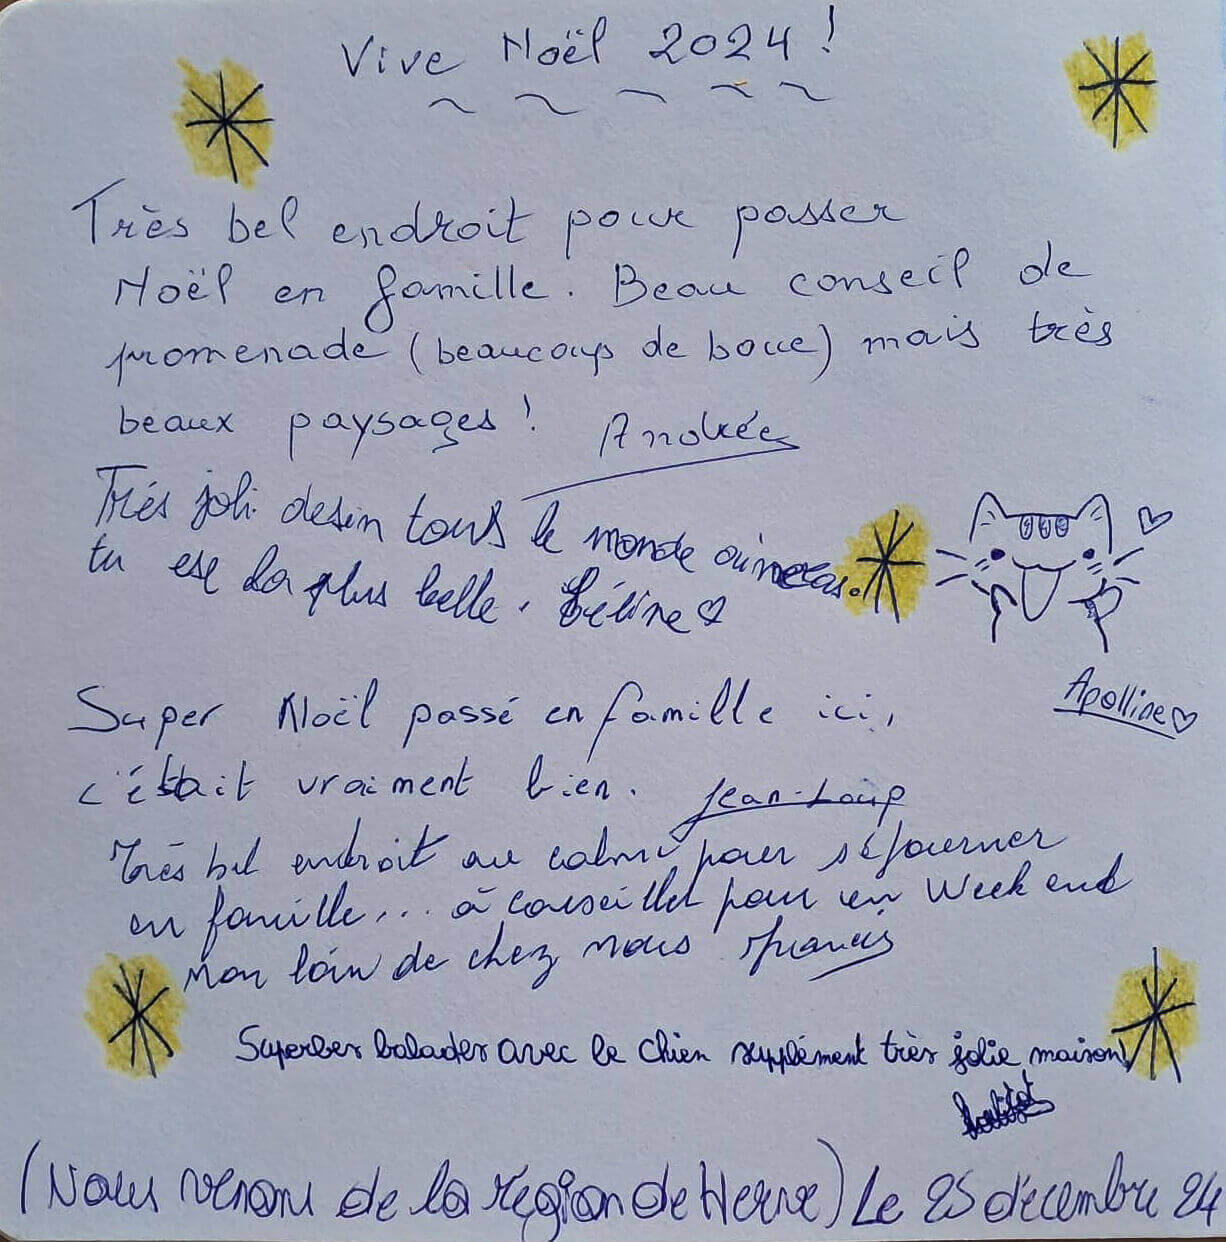 Vive Noël 2024 !
Très bel endroit pour passer
Noël en famille. Beau conseil de
promenade (beaucoup de boue) mais très
beaux paysages ! Andrée
Très joli desin tous le monde aimeras.
tu ese la plus belle. Céline
Apolline
Super Noël passé en famille ici,
c'était vraiment bien. Jean-Loup
Très bel endroit au calme pour séjourner
en famille... à conseiller pour un Week end
non loin de chez nous Francis
Superbes balades avec le chien supplément très jolie maison
(Nous venons de la région de Herve) Le 25 décembre 24